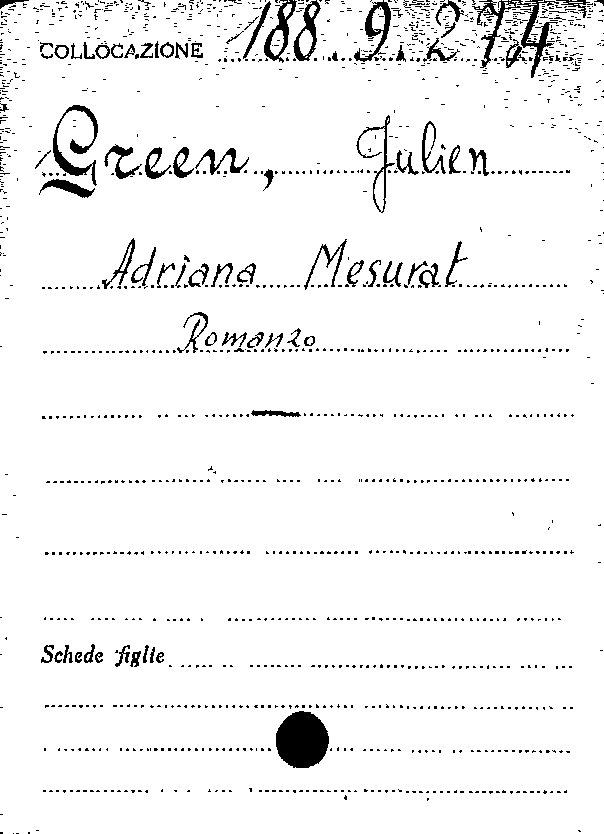 COLLOCAZIONE 188.9.27.4
Green, Julien
Adriana Mesurat
Romanzo
Schede figlie